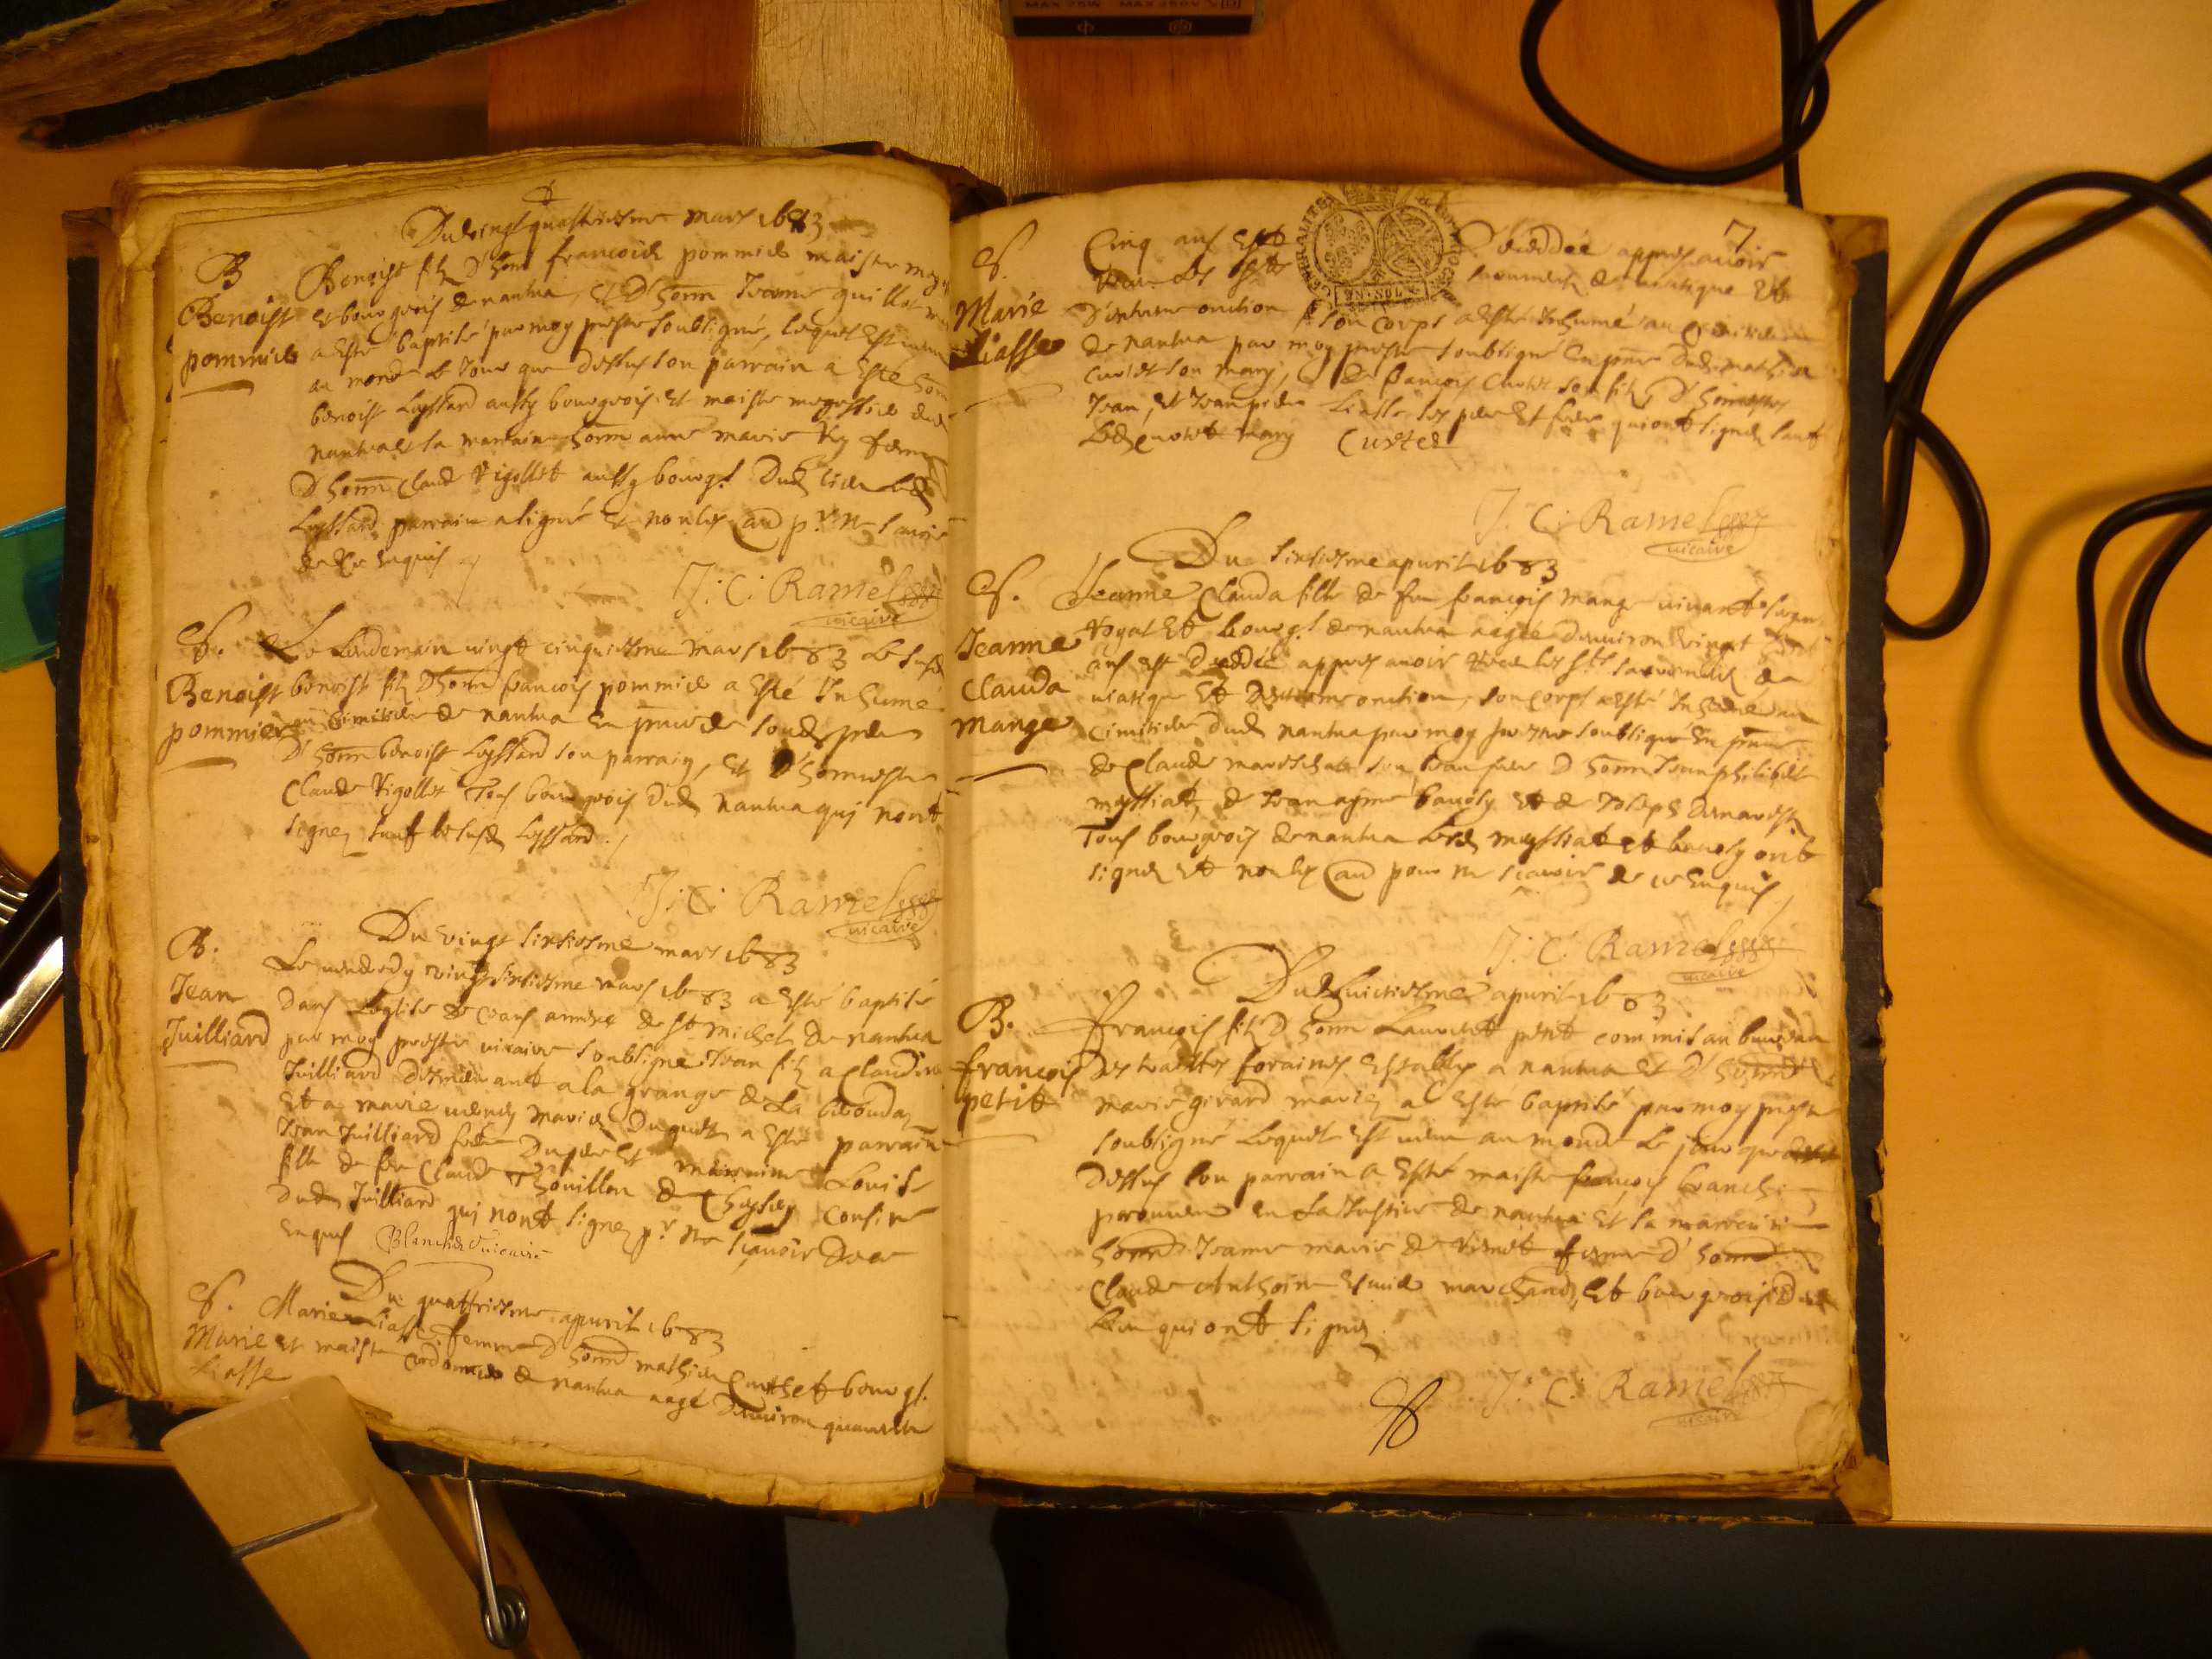 MAX 75W MAX 250V
Du vingt quattriesme mars 1683
B
Benoist
pommier
Benoist filz d'honn francois pommier maistre
et bourgeois de nantua, et d'honn Jeanne quillot
a esté baptisé par moy prestre soubsigné, lequel est venu
au monde le Jour que dessus son parrain a esté honn
benoist Luissard aussy bourgeois et maistre
nantua et sa marraine honn anne marie Rey femme
d'honn Claude Vigollet aussy bourg.s dud lieu led
Luissard parrain a signé et non les au p.r ne scavoir
de ce enquis
J: C: Ramel
vicaire
S.
Benoist
pommier
Le Lendemain vingt cinquiesme Mars 1683 le susd
benoist filz d'honn francois pommier a esté Inhumé
au Cimitiere de nantua en pnce de sond pere
d'honn benoist Luissard son parrain, et d'honneste
Claude Vigollet Tous bourgeois dud nantua qui n'ont
signez sauf le susd Luissard.
J: C: Ramel
vicaire
Du vingt sixiesme mars 1683
B.
Jean
Juilliard
Le vendredy vingt sixiesme mars 1683 a esté baptisé
dans Leglise de st michel de nantua
par moy prestre vicaire soubsigne Jean filz a Claudin
Juilliard demeurant a la grange de La
et a marie mariez Duquel a esté parrain
Jean Juilliard frere du pere et marraine Louise
fille de feu Claude Thouillon de cousine
dud Juilliard qui n'ont signez p.r ne scavoir de ce
enquis Blanchet vicaire
Du quattriesme apuril 1683
S.
Marie
Liasse
Marie Liasse femme d'honn mathieu Curtet bourg.s
et maistre cordonnier de nantua aagé d'environ quarente
7
S.
Marie
Liasse
GENERALITE
UN·SOL
Cinq ans est decedée appres avoir
receu les sts sacremens de viatique et
d'extreme onction, son corps a esté Inhumé au Cimitiere
de nantua par moy prestre soubsigné en pnce dud mathieu
Curtet son mary, de francois Curtet son filz, d'honnestes
Jean, et Jean pierre Liasse ses pere et frere qui ont signez sauf
led Curtet mary Curtet
J: C: Ramel
vicaire
Du sixiesme apuril 1683
S.
Jeanne
Clauda
Mange
Jeanne Clauda fille de feu francois Mange vivant sergent
Royal et bourg.s de nantua aagée d'environ vingt
ans est decedée appres avoir receu les sts sacremens de
viatique et d'extreme onction, son corps a esté Inhumé au
cimitiere dud nantua par moy prestre soubsigné en pnce
de Claude mareschal son beau frere d'honn Jean philibert
myssiat, de Jean ayme baudy et de Joseph
Tous bourgeois de nantua lesd myssiat et baudy ont
signez et non les au pour ne scavoir de ce enquis
J: C: Ramel
vicaire
Du huictiesme apuril 1683
B.
francois
petit
francois filz d'honn Laurent petit commis au bureau
des traittes foraines estably a nantua et d'honn
marie girard mariez a esté baptisé par moy prestre
soubsigné lequel est venu au monde le jour que
dessus son parrain a esté maistre francois
procureur en la Justice de nantua et sa marraine
honn Jeanne marie de femme d'honn
Claude Anthoine marchand, et bourgeois dud
lieu qui ont signez.
J: C: Ramel
vicaire